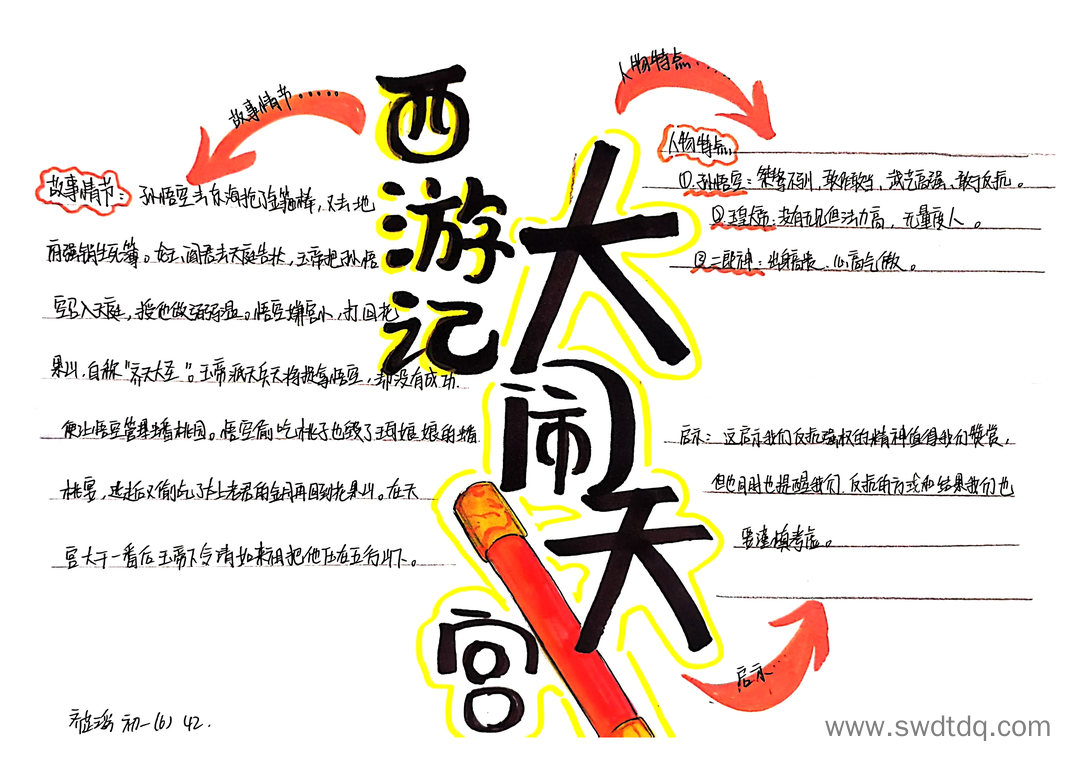 西游记
大闹天宫
故事情节·····
故事情节：孙悟空去东海抢了金箍棒，又去地
府强销生死簿。龙王、阎君去天庭告状，玉帝把孙悟
空召入天庭，授他做弼马温。悟空嫌官小，打回花
果山，自称“齐天大圣”。玉帝派天兵天将捉拿悟空，都没有成功.
便让悟空管理蟠桃园。悟空偷吃了桃子也毁了王母娘娘的蟠
桃宴，逃后又偷吃了太上老君的金丹再回到花果山。在天
宫大干一番后玉帝下令请如来佛祖把他压在五行山下。
人物特点·····
人物特点：
①.孙悟空：桀骜不驯，敢作敢当，武艺高强，敢于反抗。
②.玉皇大帝：法力高，无量度人。
③.二郎神：心高气傲。
启示：这启示我们反抗强权的精神值得我们赞赏，
但也同时也提醒我们，反抗的方式和结果我们也
要谨慎考虑。
启示···
初一(6) 42.
www.swdtdq.com